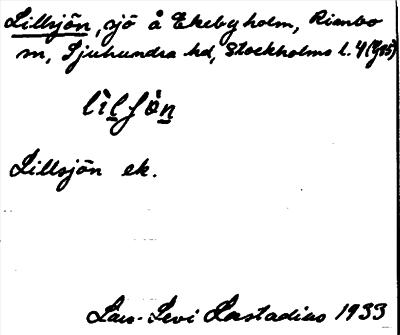 Lillsjön, sjö å Ekebyholm, Rimbo
sn, Sjuhundra hd, Stockholms l. 4 (Y05)
lìlʃö̀n
Lillsjön ek.
Lars-Levi Læstadius 1933